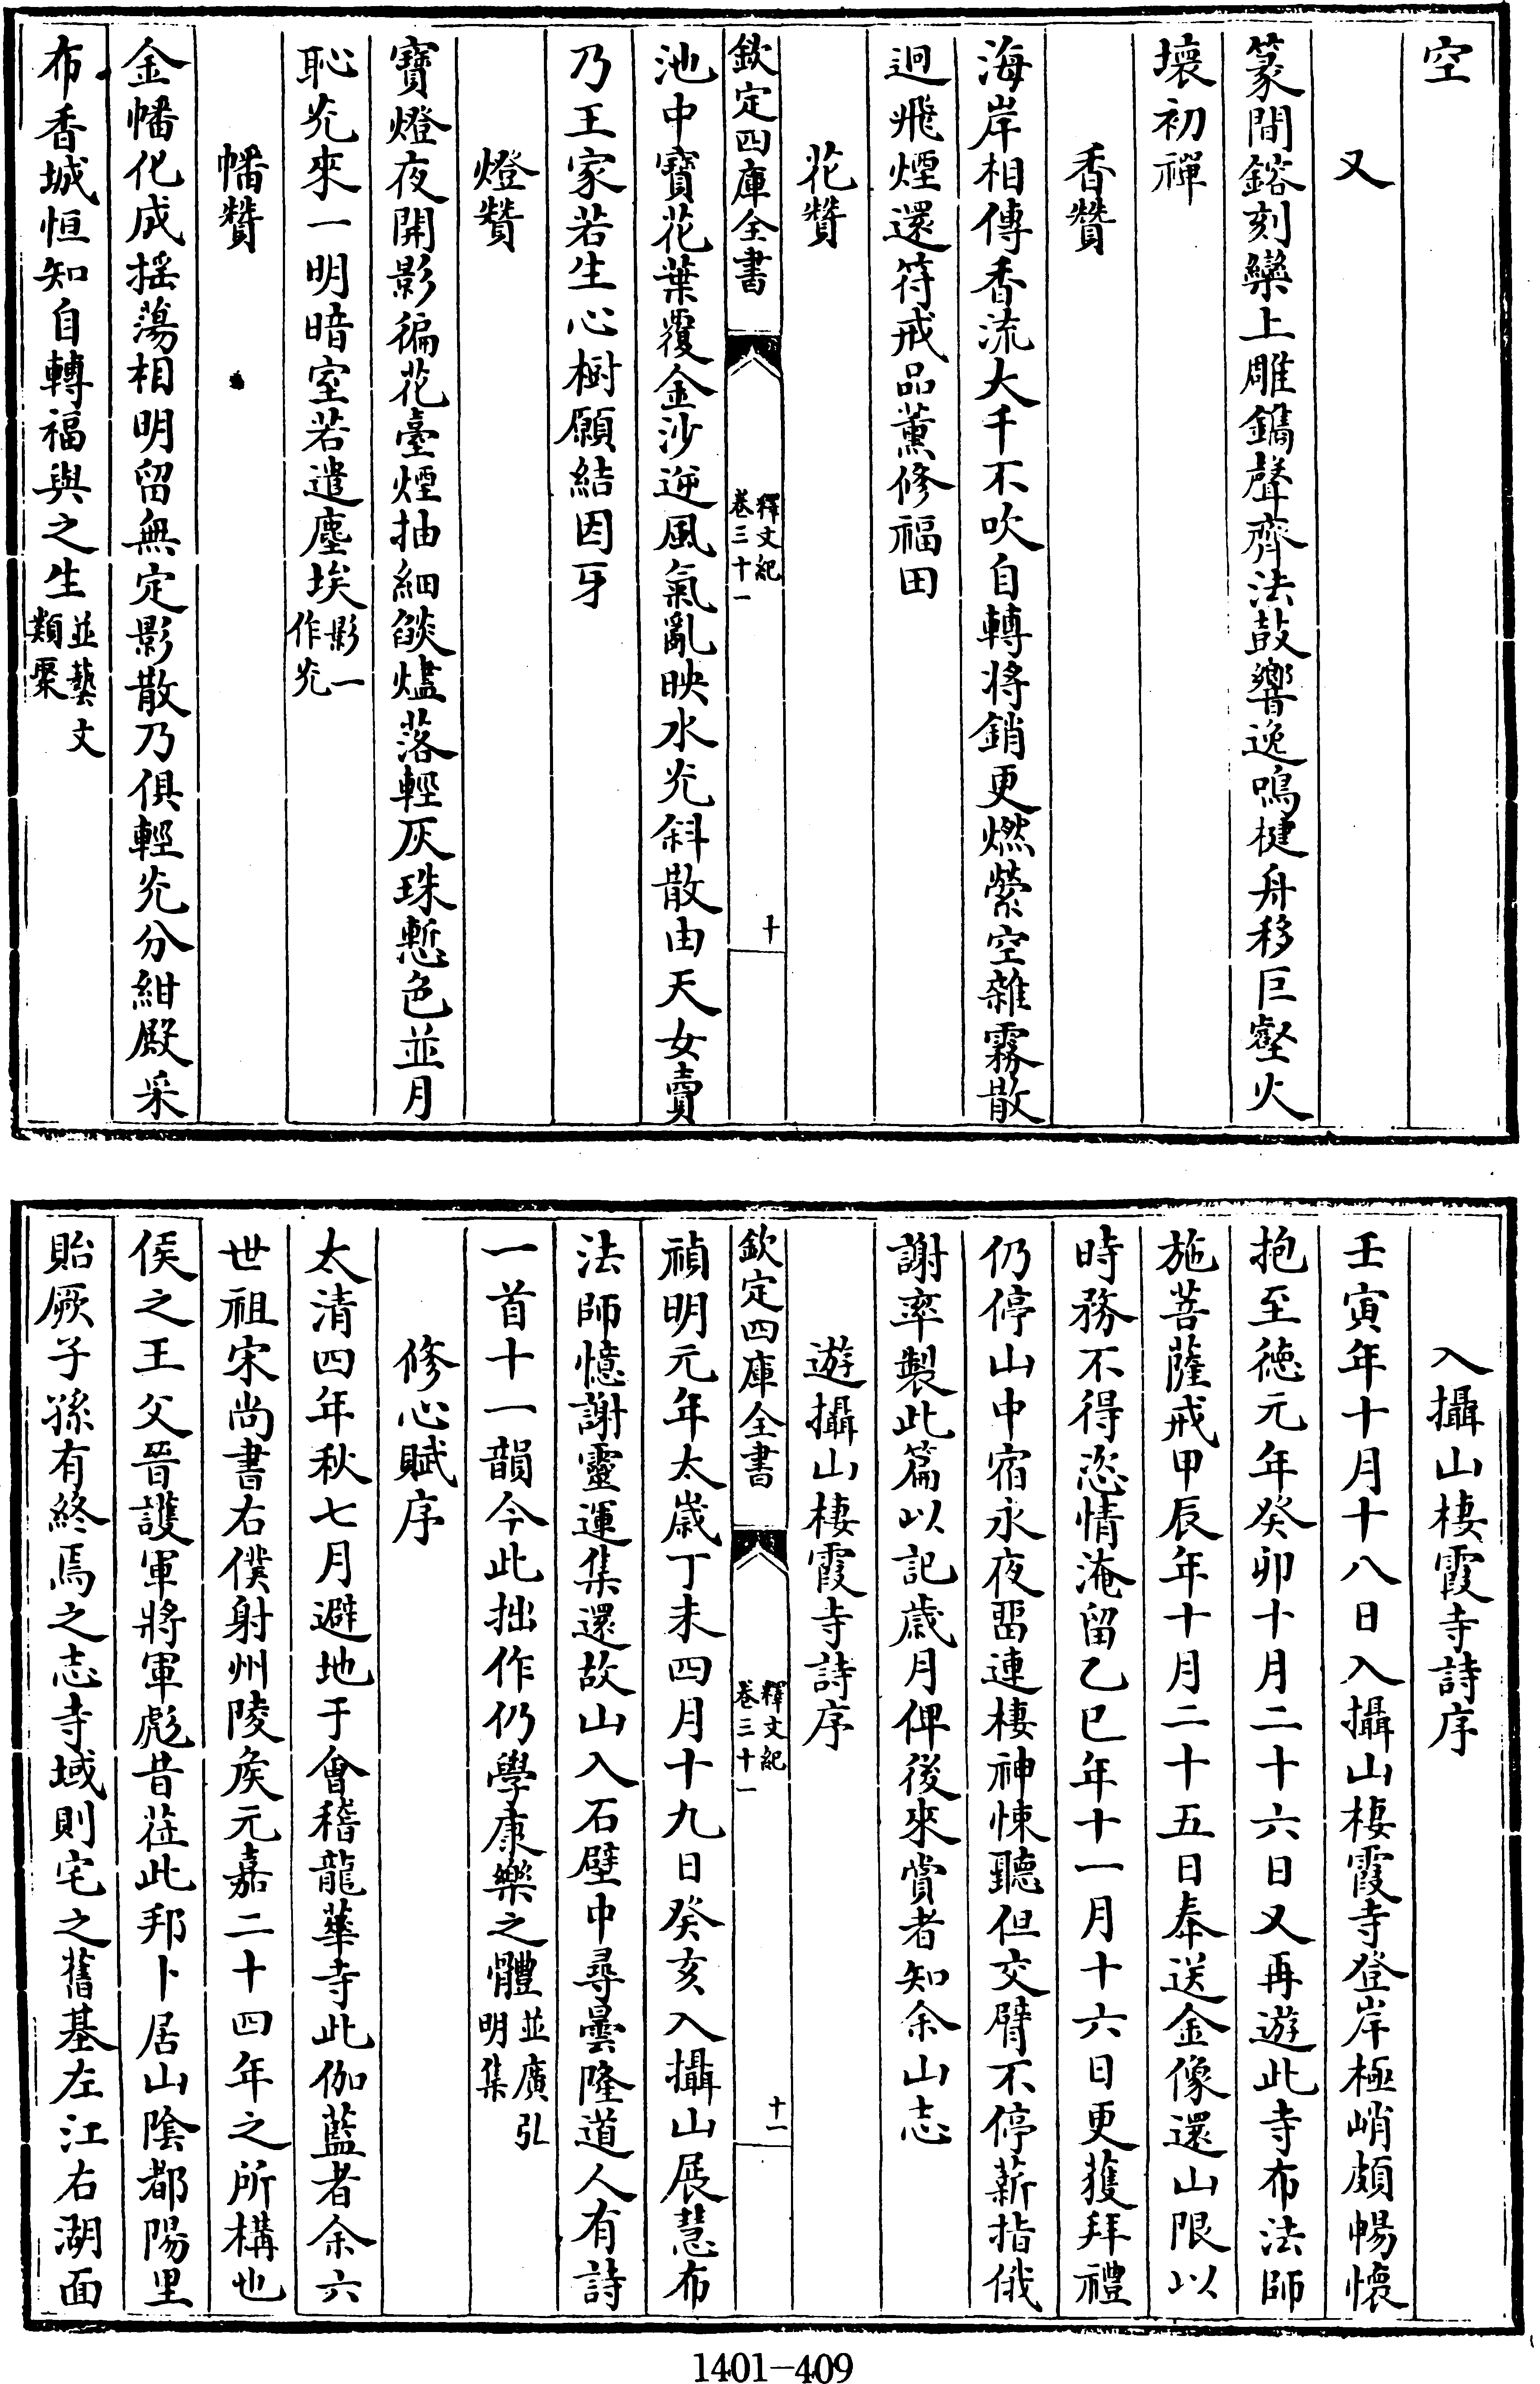 空
又
篆間鎔刻欒上雕鐫聲齊法鼓響逸鳴楗舟移巨壑火
壞初禪
香贊
海岸相傳香流大千不吹自轉將銷更燃縈空雜霧散
迥飛煙還符戒品薫修福田
花贊
欽定四庫全書
釋文紀
卷三十一
十
池中寶花葉覆金沙逆風氣亂映水光斜散由天女賣
乃王家若生心樹願結因牙
燈贊
寶燈夜開影徧花臺煙抽細燄燼落輕灰珠慙色並月
恥光來一明暗室若遣塵埃影一作光
幡贊
金幡化成揺蕩相明留無定影散乃俱輕光分紺殿采
布香城恒知自轉福與之生並藝文類聚
入攝山棲霞寺詩序
壬寅年十月十八日入攝山棲霞寺登岸極峭頗暢懷
抱至徳元年癸卯十月二十六日又再遊此寺布法師
施菩薩戒甲辰年十月二十五日奉送金像還山限以
時務不得恣情淹留乙巳年十一月十六日更獲拜禮
仍停山中宿永夜留連棲神悚聽但交臂不停薪指俄
謝率製此篇以記歲月俾後來賞者知余山志
遊攝山棲霞寺詩序
欽定四庫全書
釋文紀
卷三十一
十一
禎明元年太歲丁未四月十九日癸亥入攝山展慧布
法師憶謝靈運集還故山入石壁中尋曇隆道人有詩
一首十一韻今此拙作仍學康樂之體並廣弘明集
修心賦序
太清四年秋七月避地于會稽龍華寺此伽藍者余六
世祖宋尚書右僕射州陵矦元嘉二十四年之所構也
侯之王父晉護軍將軍彪昔莅此邦卜居山陰都陽里
貽厥子孫有終焉之志寺域則宅之舊基左江右湖面
1401-409